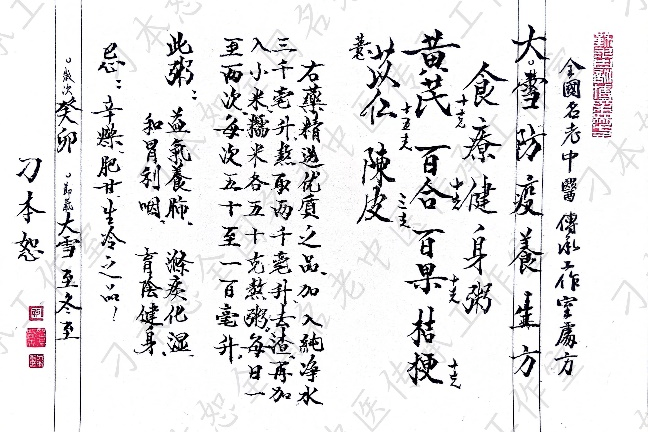 全國名老中醫傳承工作室處方
大雪防疫養生方
食療健身粥
黄芪 十克 百合 十克 百果 十克 桔梗 十克
薏苡仁 十五克 陳皮 三克
右藥精选优質之品、加入純净水
三千毫升熬取两千毫升去渣、再加
入小米糯米各五十克熬粥、每日一
至两次、每次五十至一百毫升。
此粥：益氣養肺、滌痰化湿
和胃利咽、育陰健身、
忌：辛燥、肥甘、生冷之品！
歲次癸卯 節氣大雪至冬至
刁本恕